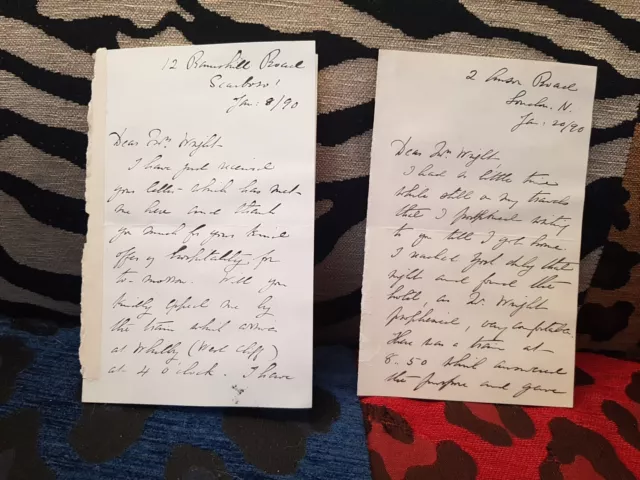 12 Ramshill Road
Scarboro'
Jan: 8/90
Dear Mrs Wright
I have just received
your letter which has met
me here and thank
you much for your kind
offer of hospitality for
to-morrow. Will you
kindly expect me by
the train which arrives
at Whitby (West Cliff)
at 4 o'clock. I have
2 Road
London. N.
Jan. 20/90
Dear Mrs Wright,
I had so little time
while still on my travels
that I postponed writing
to you till I got home
I reached York duly that
night and found the
hotel, as Mr. Wright
prophesied, very comfortable.
There was a train at
8.50 which answered
the purpose and gave